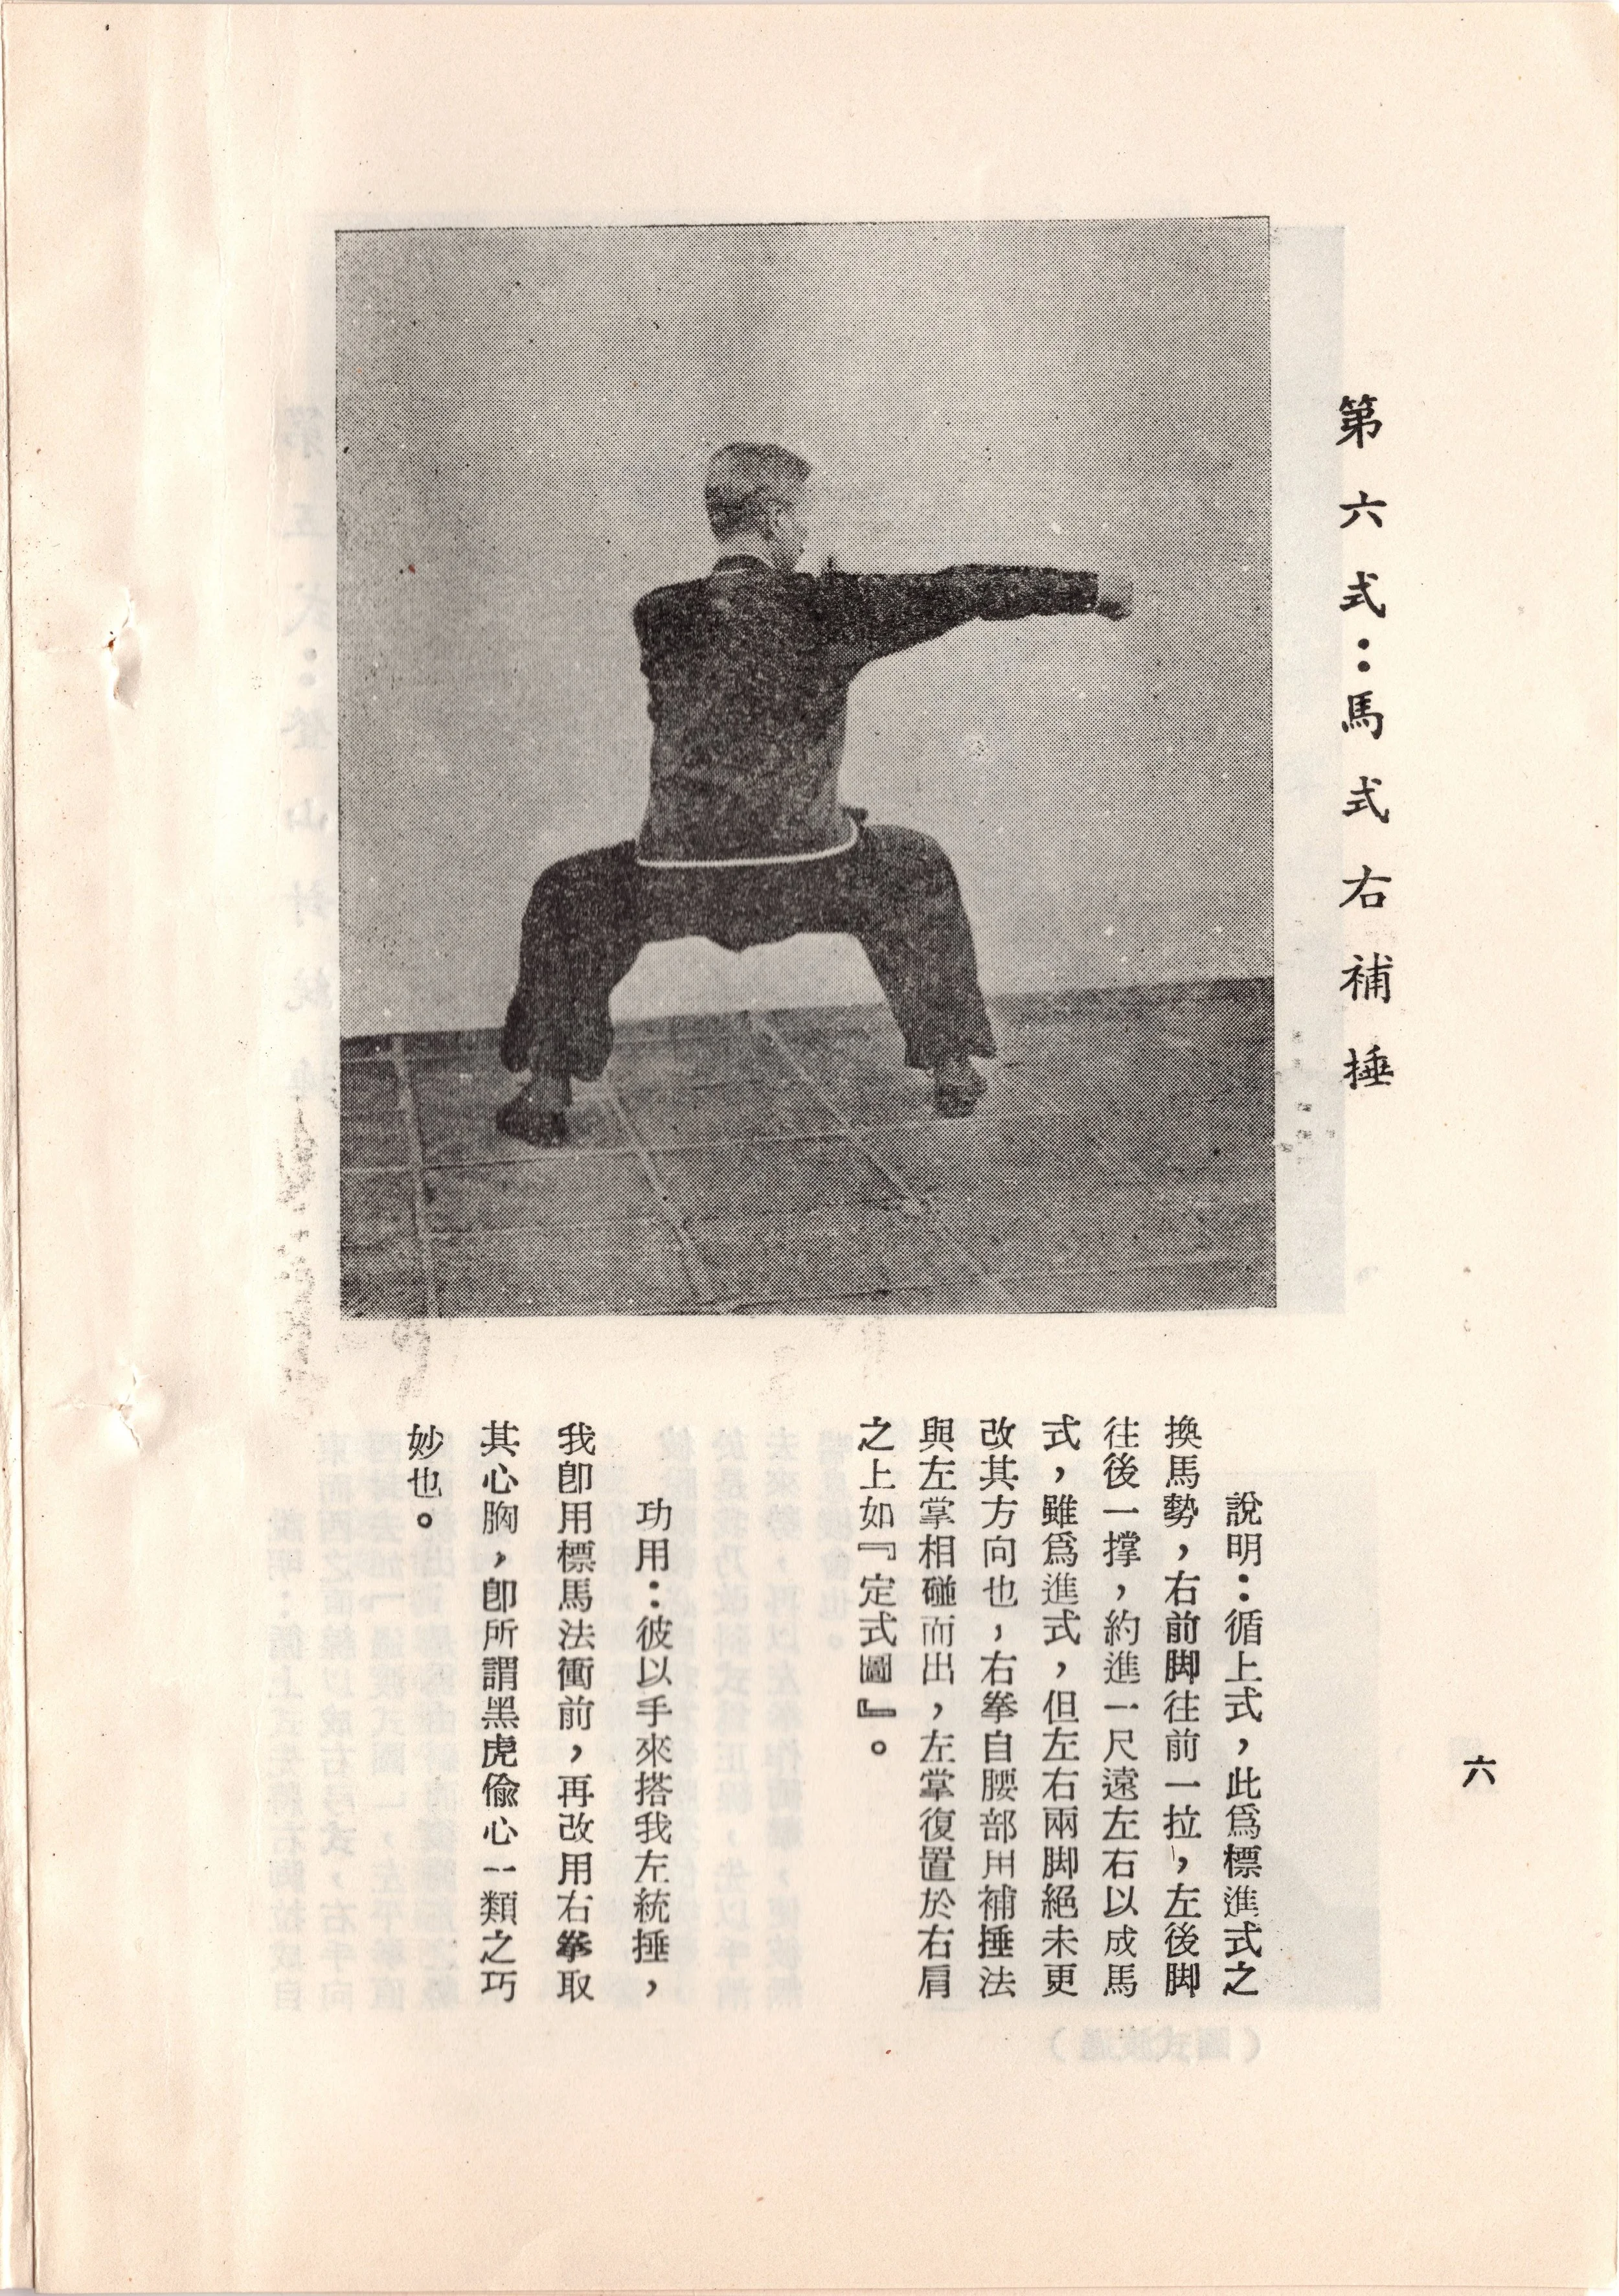 第六式：馬式右補捶
說明：循上式，此爲標進式之
換馬勢，右前脚往前一拉，左後脚
往後一撐，約進一尺遠左右以成馬
式，雖爲進式，但左右兩脚絕未更
改其方向也，右拳自腰部用補捶法
與左掌相碰而出，左掌復置於右肩
之上如『定式圖』。
功用：彼以手來搭我左統捶，
我卽用標馬法衝前，再改用右拳取
其心胸，卽所謂黑虎偷心一類之巧
妙也。
六